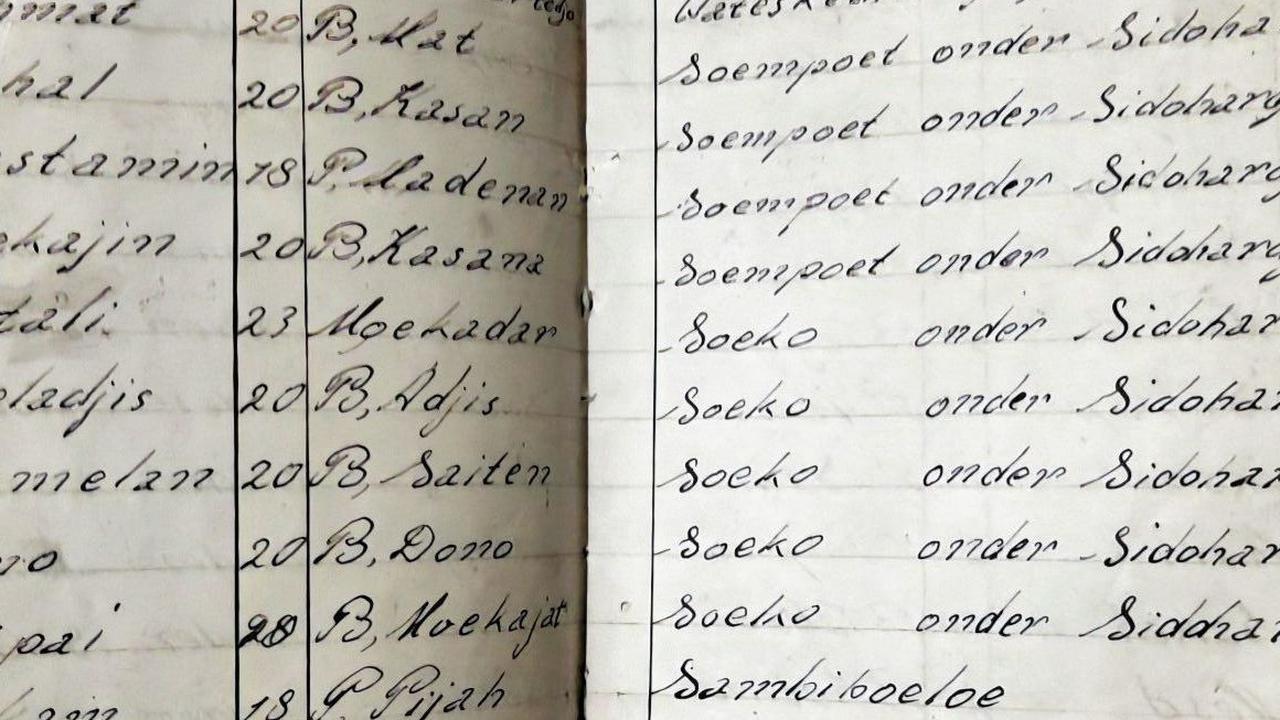 mat 20 B, Mat Soempoet onder Sidoha
hal 20 B, Kasan Soempoet onder Sidoharg
stamin 18 P. Madenan Soempoet onder Sidoharg
kajin 20 B, Kasana Soempoet onder Sidoharg
tali 23 Moekadar Soeko onder Sidohar
ladjis 20 B, Adjis Soeko onder Sidohar
melan 20 B, Saiten Soeko onder Sidohar
no 20 B, Dono Soeko onder Sidohar
pai 20 B, Moekajat Soeko onder Sidohar
18 P. Pijah Sambiboeloe